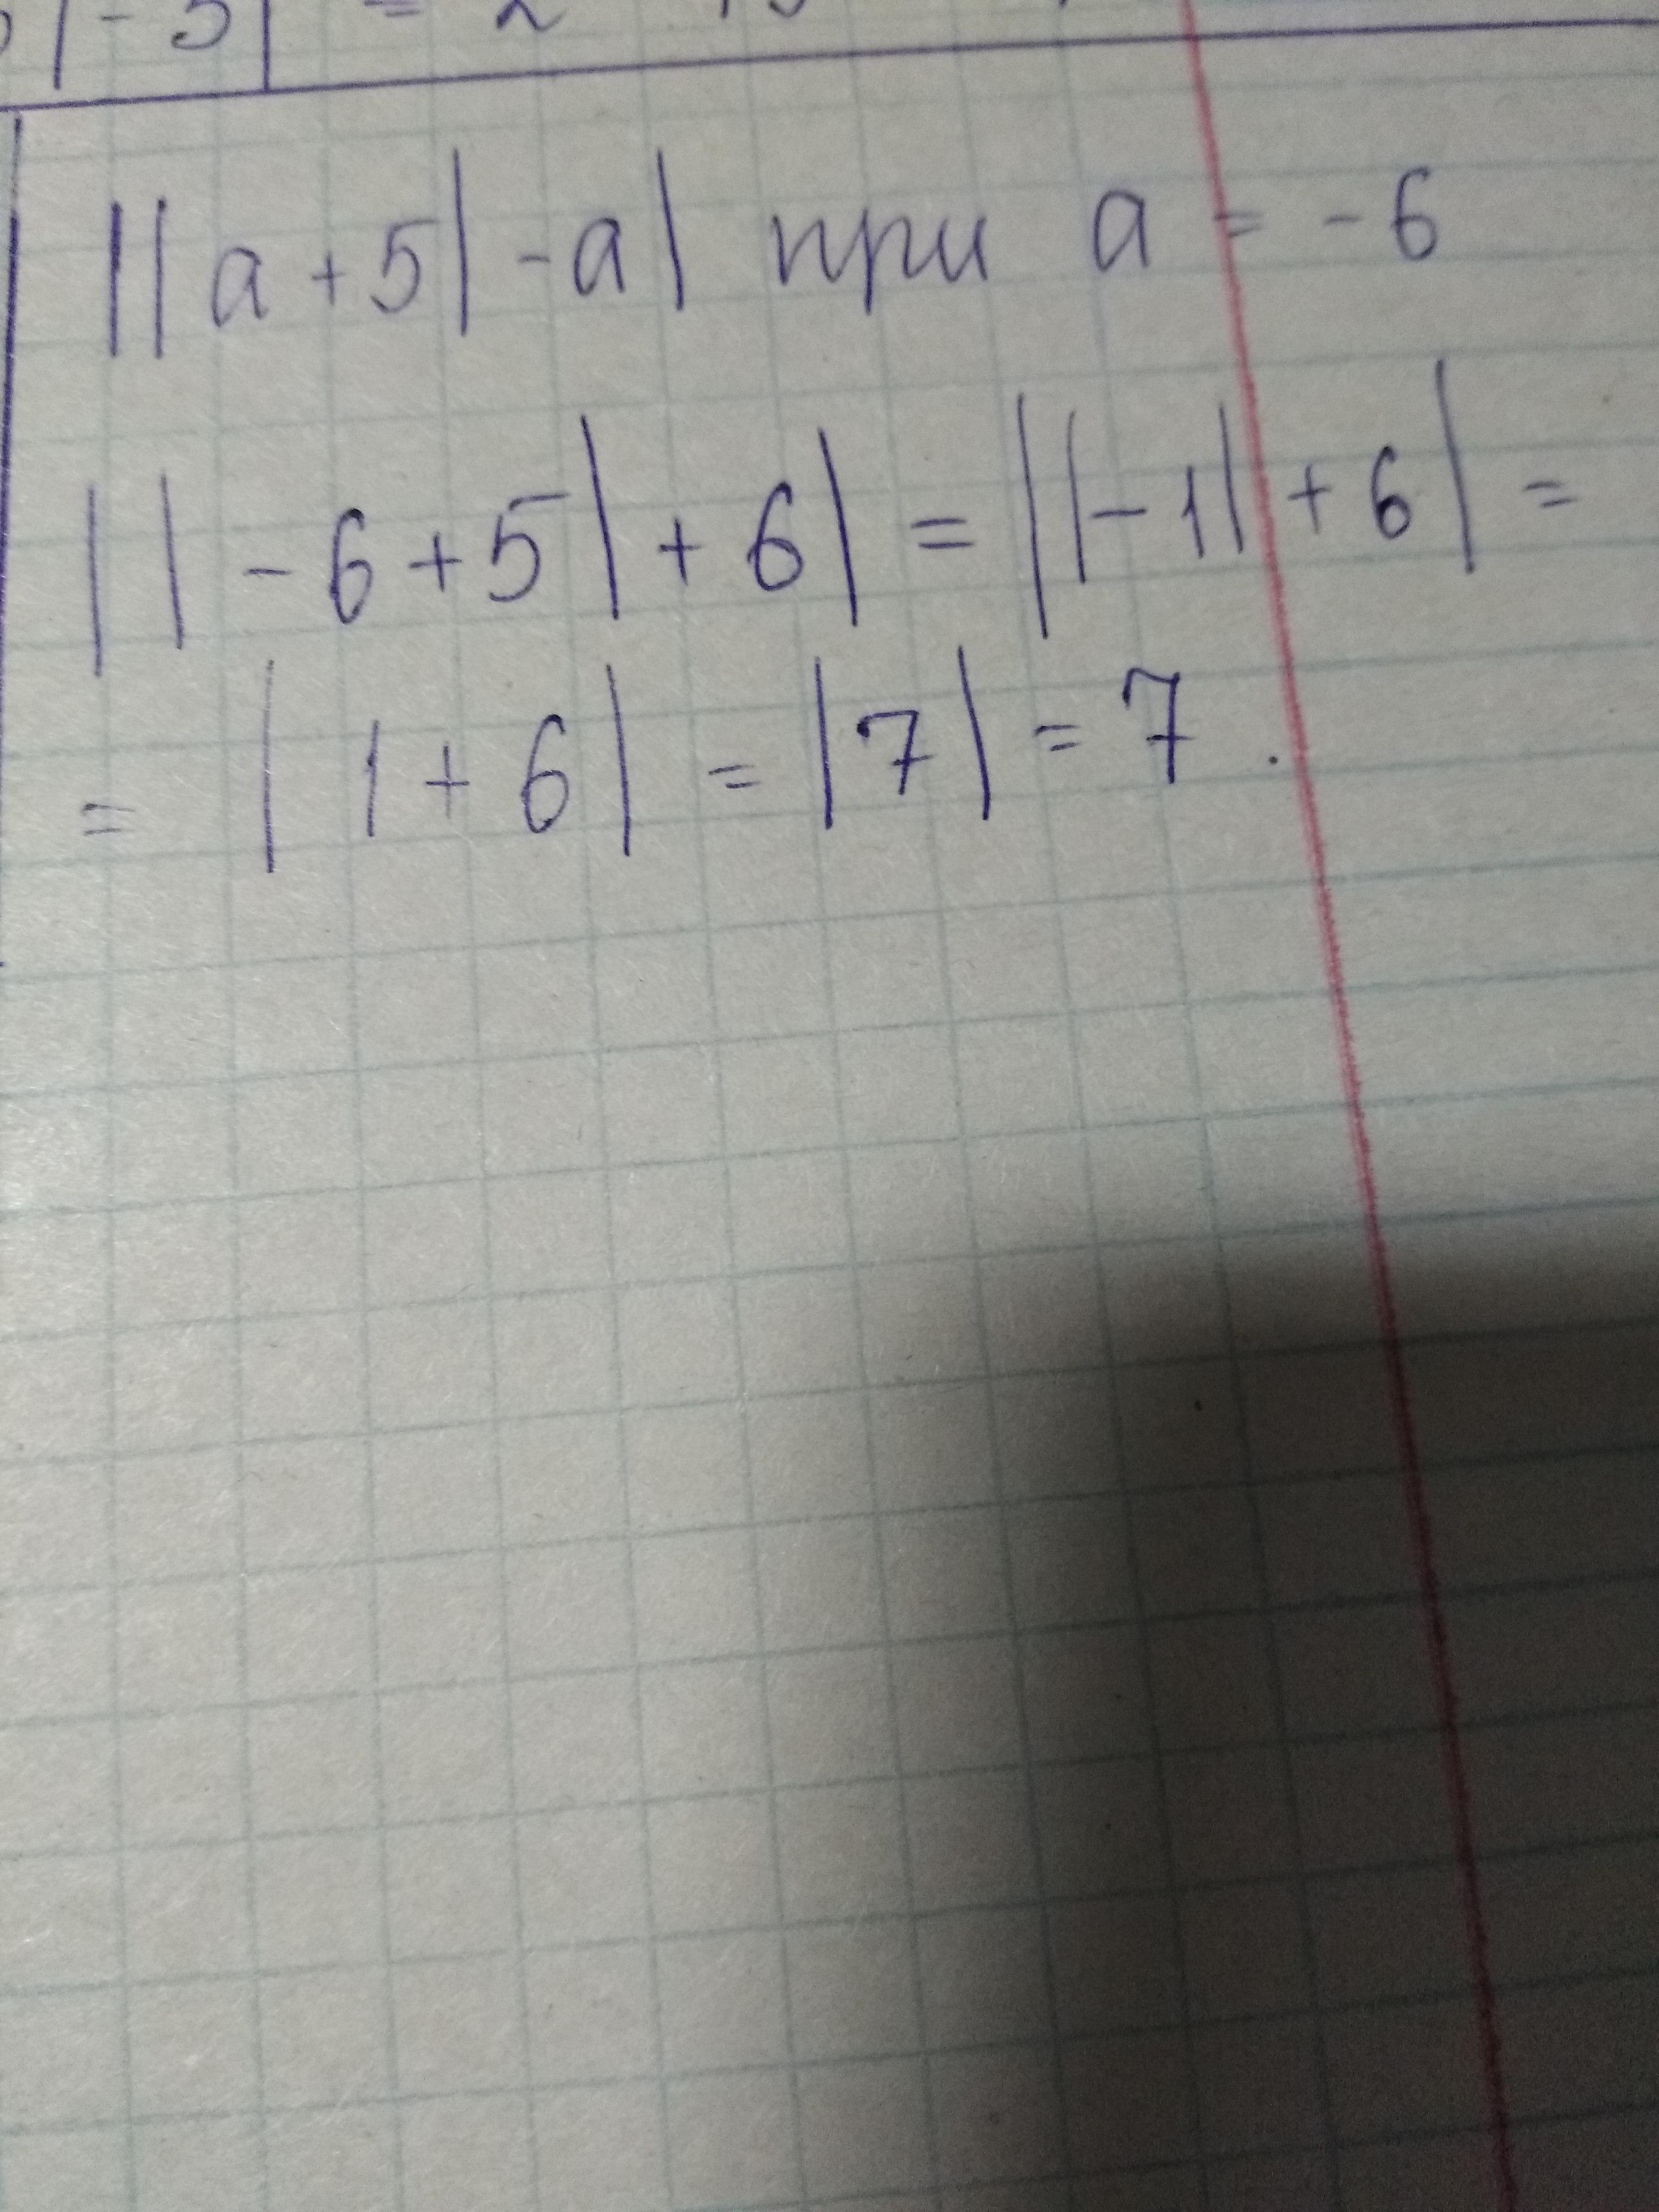 | - 5| = 2
||a + 5| - a| при a = -6
|| - 6 + 5| + 6| = ||- 1| + 6| =
= | 1 + 6| = |7| = 7.